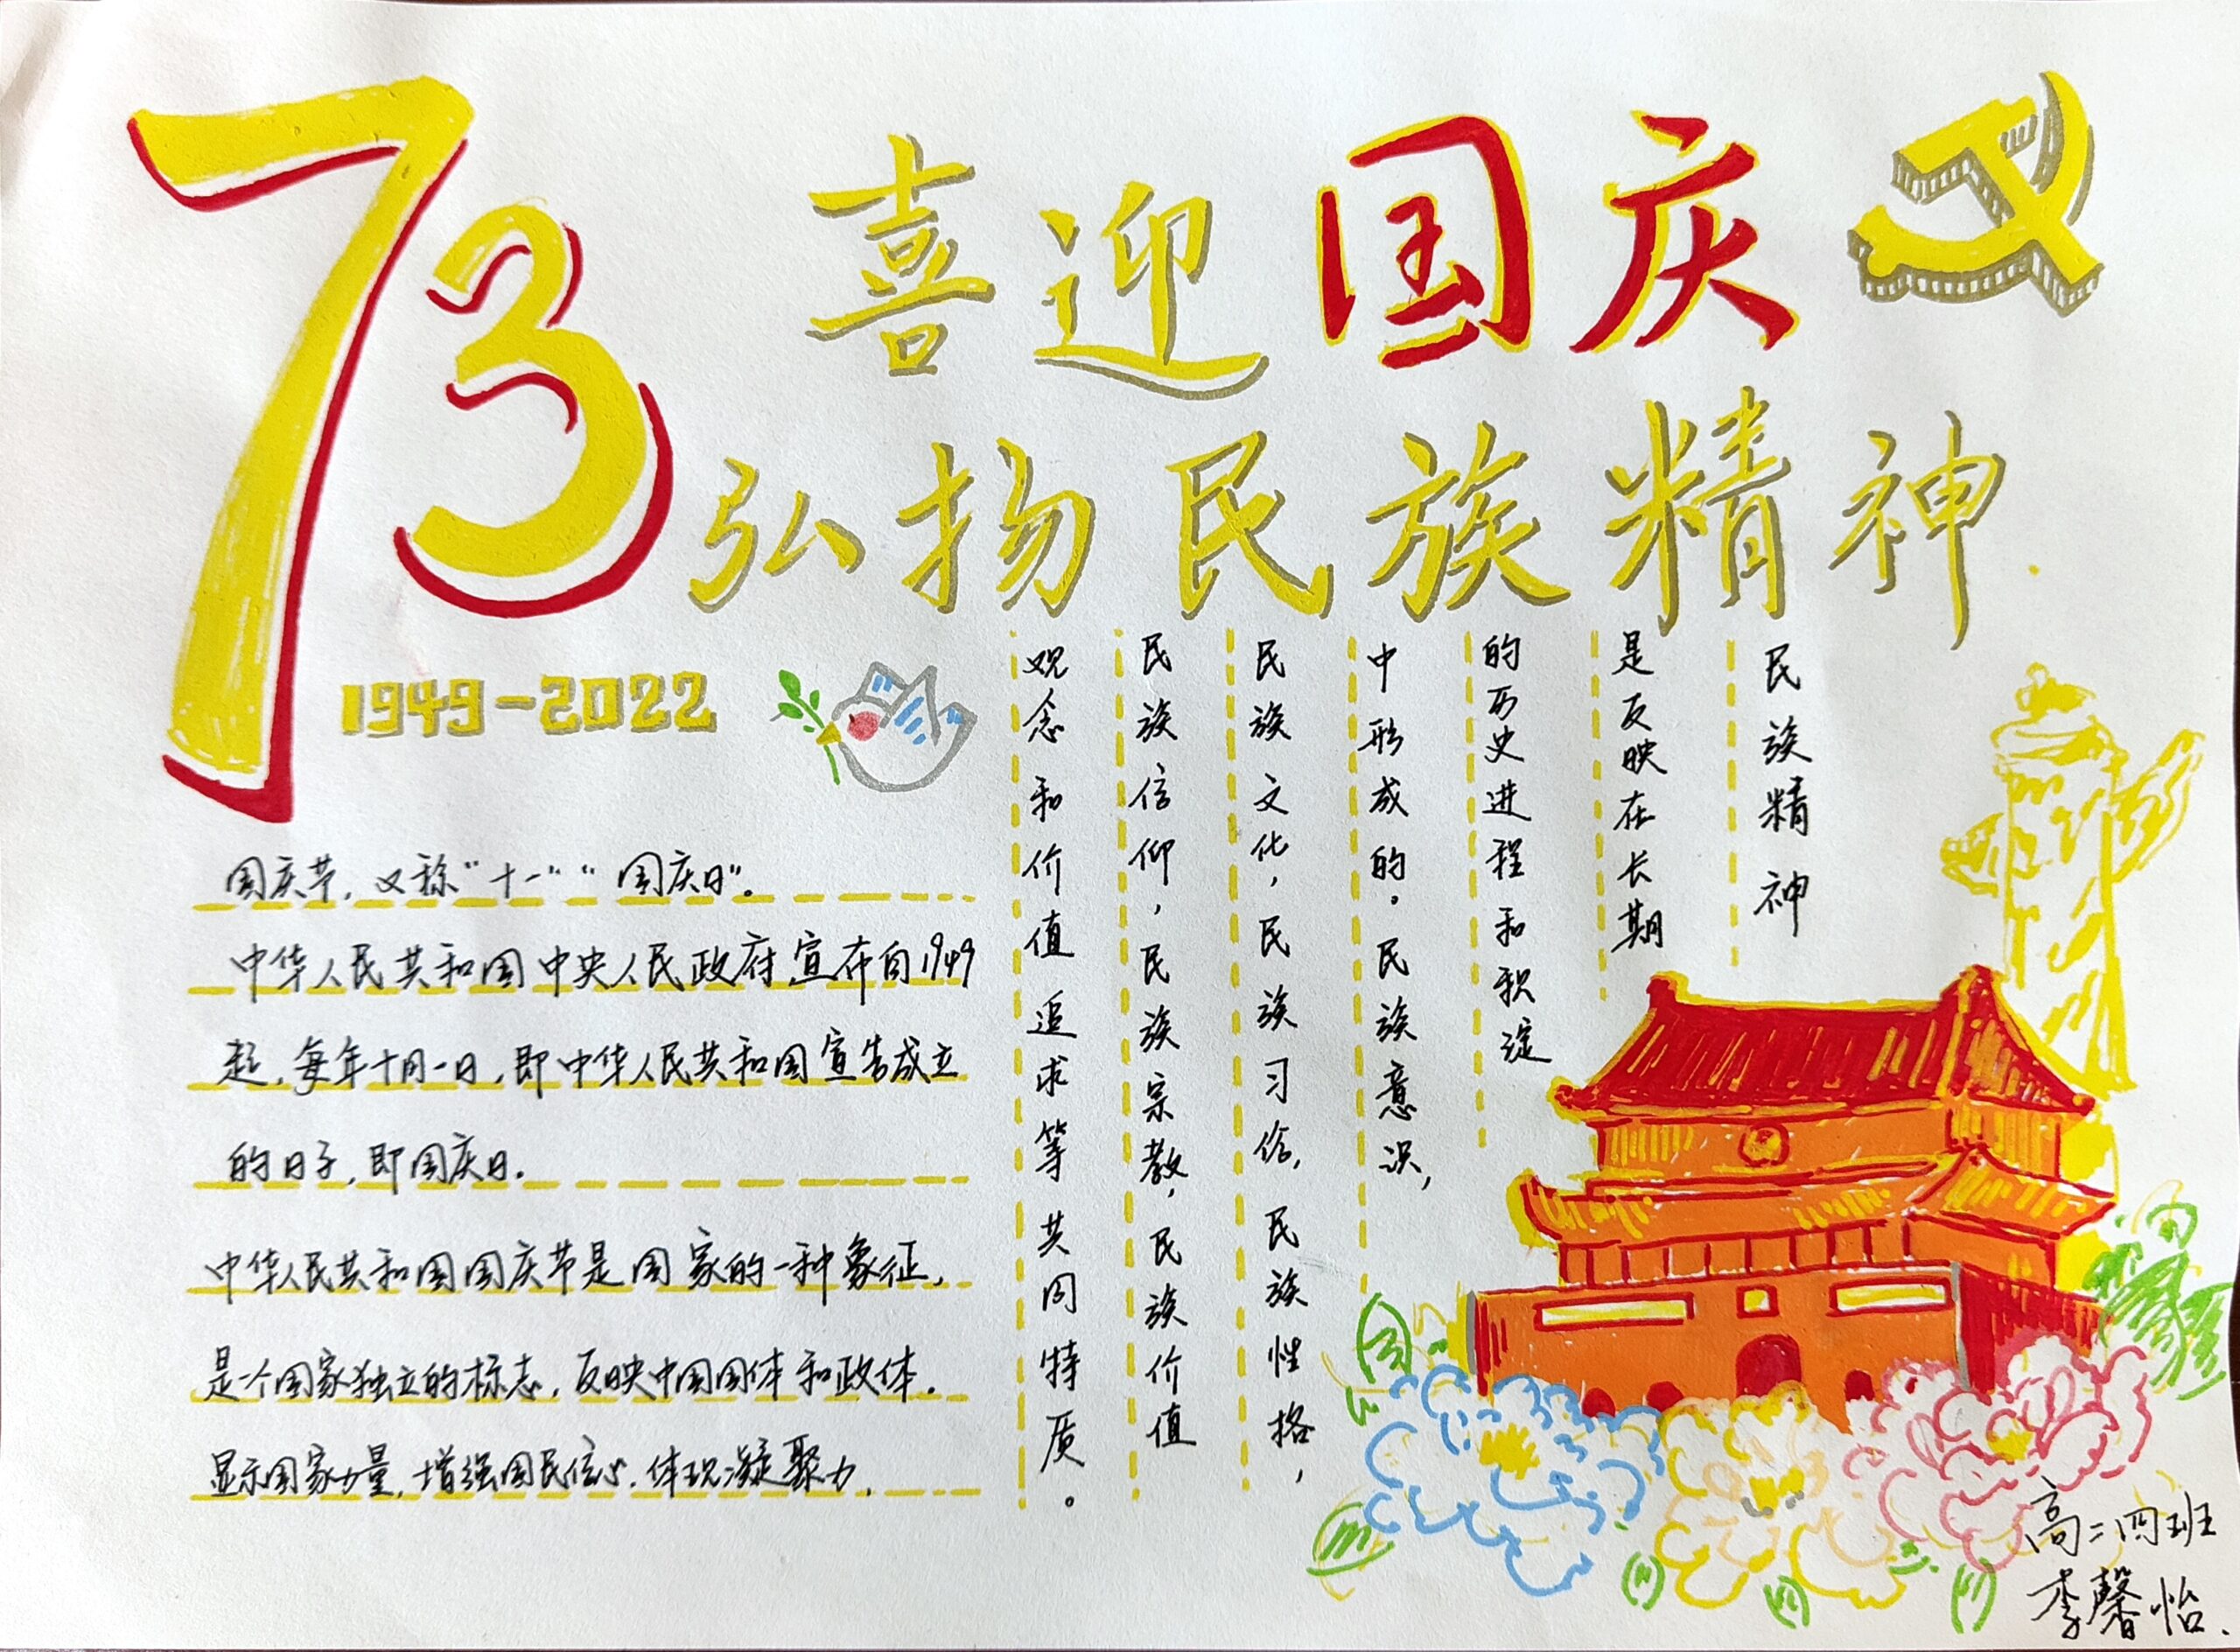 73
喜迎国庆
弘扬民族精神
1949-2022
国庆节，又称“十一”“国庆日”。
中华人民共和国中央人民政府宣布自1949
起，每年十月一日，即中华人民共和国宣告成立
的日子，即国庆日。
中华人民共和国国庆节是国家的一种象征，
是一个国家独立的标志，反映中国国体和政体。
显示国家力量，增强国民信心，体现凝聚力，
民族精神
是反映在长期
的历史进程和积淀
中形成的。民族意识，
民族文化，民族习俗，民族性格，
民族信仰，民族宗教，民族价值
观念和价值追求等共同特质。
高二四班
李馨怡.